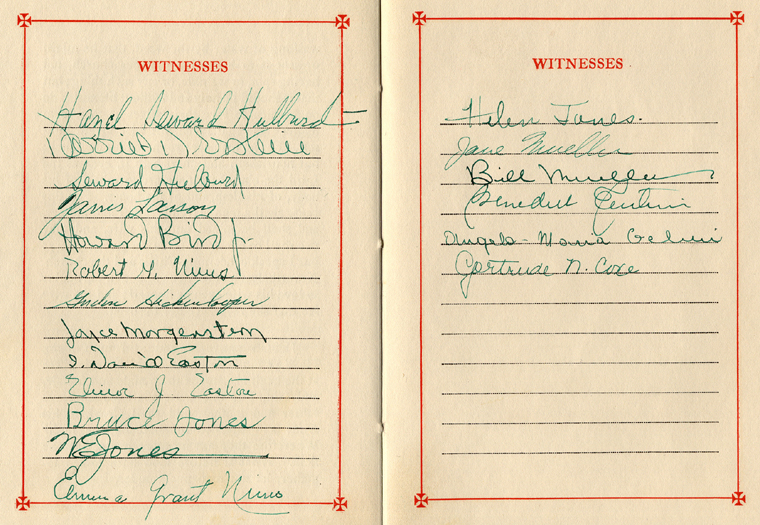 WITNESSES
Hazel Seward Hulburd
Seward Hulburd
James Larson
Howard Bird Jr.
Robert Y. Nims
Joyce Morgenstern
I. David Easton
Elinor J Easton
Bruce Jones
W E Jones
Emma Grant Nims
WITNESSES
Helen Jones.
Jane Mueller
Bill Mueller
Benedict
Angela-Maria
Gertrude N. Coxe